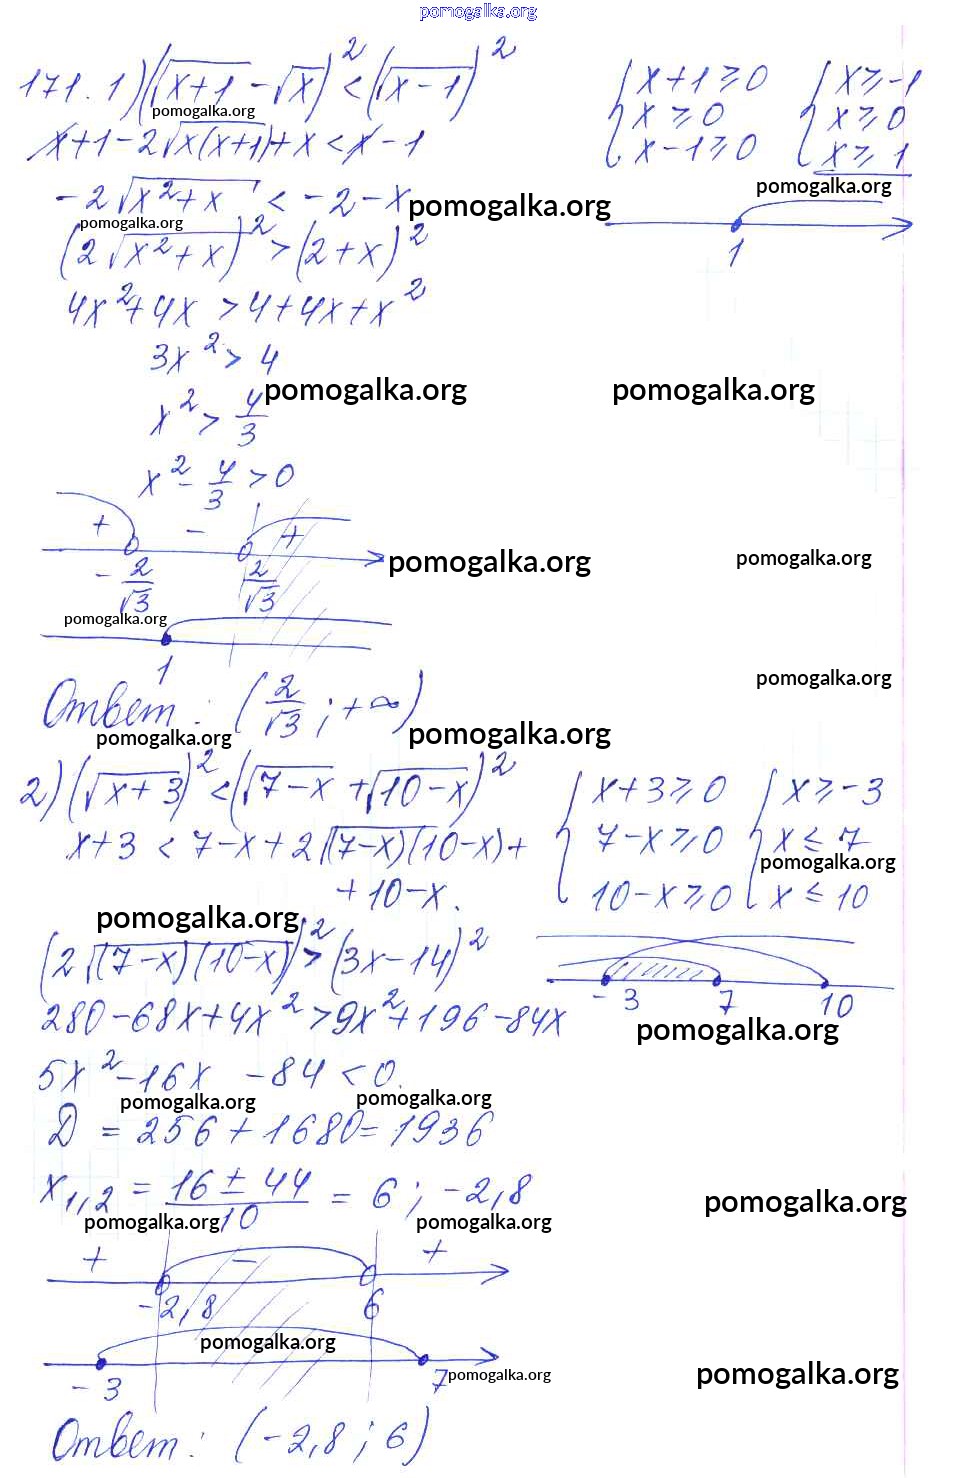 pomogalka.org
171. 1) (√(x+1) - √x)² < (√(x-1))² { x+1 ≥ 0 { x ≥ -1
pomogalka.org { x ≥ 0 { x ≥ 0
x+1-2√(x(x+1))+x < x-1 { x-1 ≥ 0 { x ≥ 1
pomogalka.org
-2√(x²+x) < -2-x pomogalka.org
pomogalka.org
(2√(x²+x))² > (2+x)² 1
4x²+4x > 4+4x+x²
3x² > 4
pomogalka.org pomogalka.org
x² > 4/3
x² - 4/3 > 0
+ - +
pomogalka.org pomogalka.org
-2/√3 2/√3
pomogalka.org
1
pomogalka.org
Ответ: (2/√3; +∞)
pomogalka.org pomogalka.org
2) (√(x+3))² < (√(7-x) + √(10-x))² { x+3 ≥ 0 { x ≥ -3
x+3 < 7-x+2√((7-x)(10-x)) + { 7-x ≥ 0 { x ≤ 7
pomogalka.org
+10-x. { 10-x ≥ 0 { x ≤ 10
pomogalka.org
(2√((7-x)(10-x)))² > (3x-14)²
-3 7 10
280-68x+4x² > 9x²+196-84x
pomogalka.org
5x²-16x -84 < 0.
pomogalka.org pomogalka.org
D = 256+1680 = 1936
x₁,₂ = (16 ± 44)/10 = 6; -2,8
pomogalka.org
pomogalka.org pomogalka.org
+ - +
-2,8 6
pomogalka.org
-3 7
pomogalka.org pomogalka.org
Ответ: (-2,8; 6)